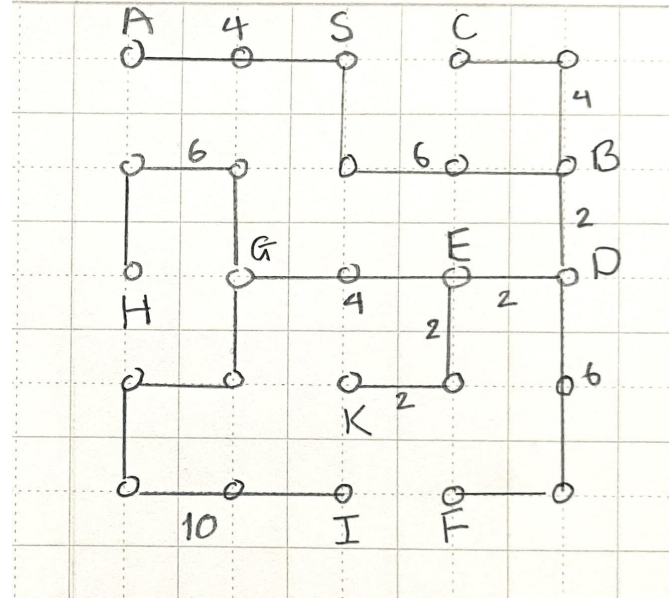 A 4 S C
4
6 6 B
2
G E D
H 4 2
2
6
K 2
10 I F